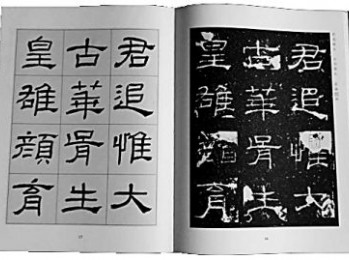 君追惟大
古華胥生
皇雄顏育
君追惟大
古華胥生
皇雄顏育